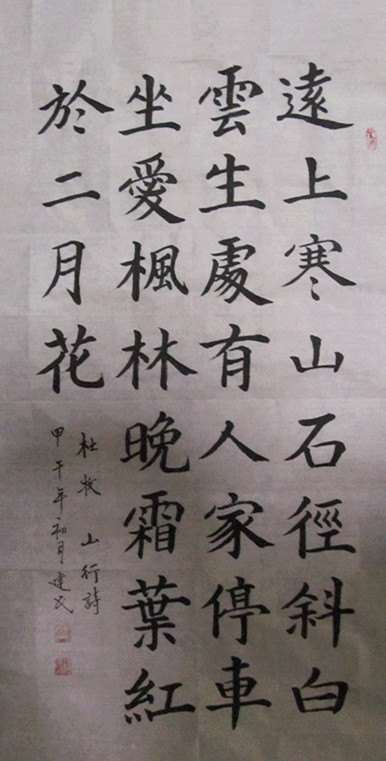 遠上寒山石徑斜白
雲生處有人家停車
坐愛楓林晚霜葉紅
於二月花
杜牧 山行詩
甲午年初月建民